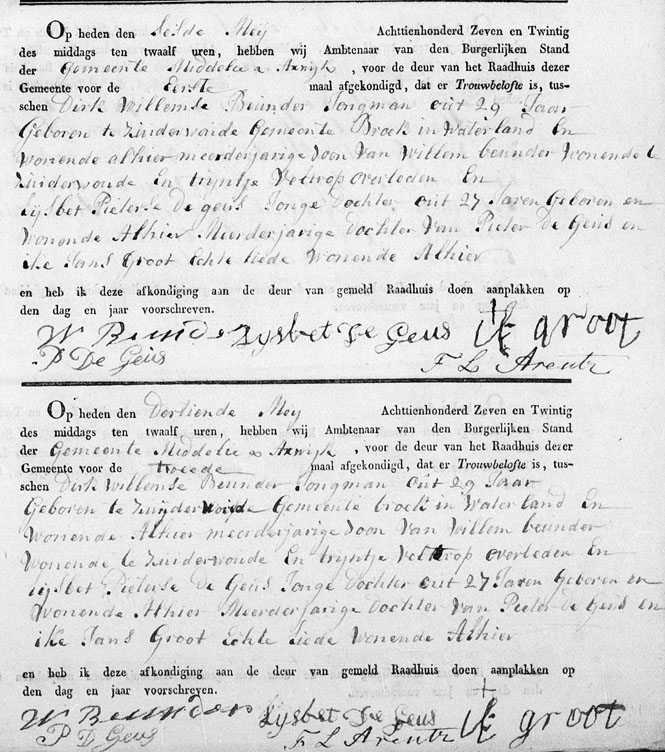 Op heden den Sesde Meij Achttienhonderd Zeven en Twintig
des middags ten twaalf uren, hebben wij Ambtenaar van den Burgerlijken Stand
der Gemeente Middelie & Axwijk, voor de deur van het Raadhuis dezer
Gemeente voor de Eerste maal afgekondigd, dat er Trouwbelofte is, tus-
schen Dirk Willemse Beunder Jongman out 29 Jaar
Geboren te Zuiderwoude Gemeente Broek in Waterland En
Wonende alhier meerderjarige Soon Van Willem beunder Wonende te
Zuiderwoude En trijntje Veltrop overleden En
Lijsbet Pieterse De geus Jonge Dochter out 27 Jaren Geboren en
Wonende Alhier Meerderjarige Dochter Van Pieter De Geus en
ike Jans Groot Echte Liede Wonende Alhier
en heb ik deze afkondiging aan de deur van gemeld Raadhuis doen aanplakken op
den dag en jaar voorschreven.
W Beunder Lysbet De Geus groot
P De Geus F L Arentz
Op heden den Dertiende Meij Achttienhonderd Zeven en Twintig
des middags ten twaalf uren, hebben wij Ambtenaar van den Burgerlijken Stand
der Gemeente Middelie & Axwijk, voor de deur van het Raadhuis dezer
Gemeente voor de tweede maal afgekondigd, dat er Trouwbelofte is, tus-
schen Dirk Willemse Beunder Jongman out 29 Jaar
Geboren te Zuijderwoude Gemeente broek in Waterland En
Wonende Alhier meerderjarige Soon Van Willem beunder
Wonende te Zuiderwoude En trijntje Veltrop overleden En
Lijsbet Pieterse De Geus Jonge Dochter out 27 Jaren Geboren en
Wonende Alhier Meerderjarige Dochter Van Pieter De Geus en
ike Jans Groot Echte Liede Wonende Alhier
en heb ik deze afkondiging aan de deur van gemeld Raadhuis doen aanplakken op
den dag en jaar voorschreven.
W Beunder Lysbet De Geus groot
P D Geus F L Arentz